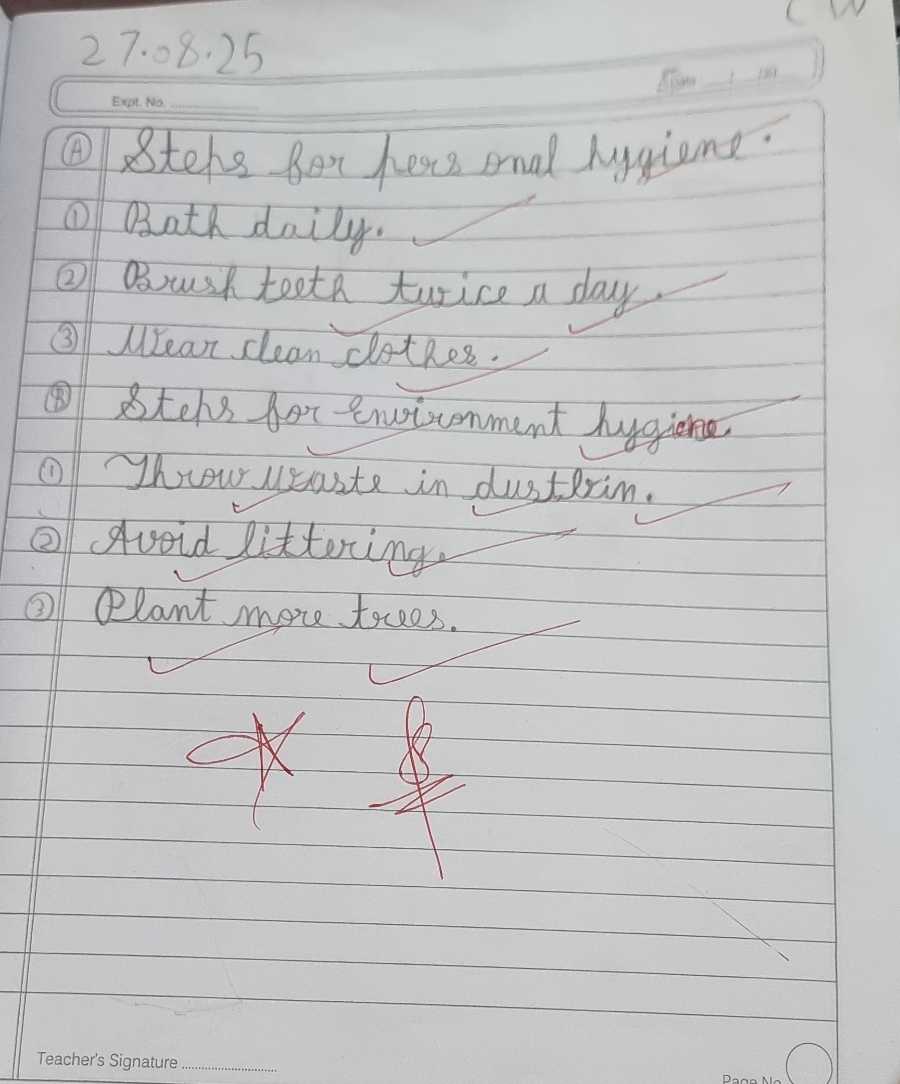 CW
27.08.25
Expt. No. ....................
Ⓐ Steps for personal hygiene.
① Bath daily.
② Brush teeth twice a day.
③ Wear clean clothes.
Ⓑ Steps for Environment hygiene.
① Throw waste in dustbin.
② Avoid littering.
③ Plant more trees.
Teacher's Signature ............................
Page No.